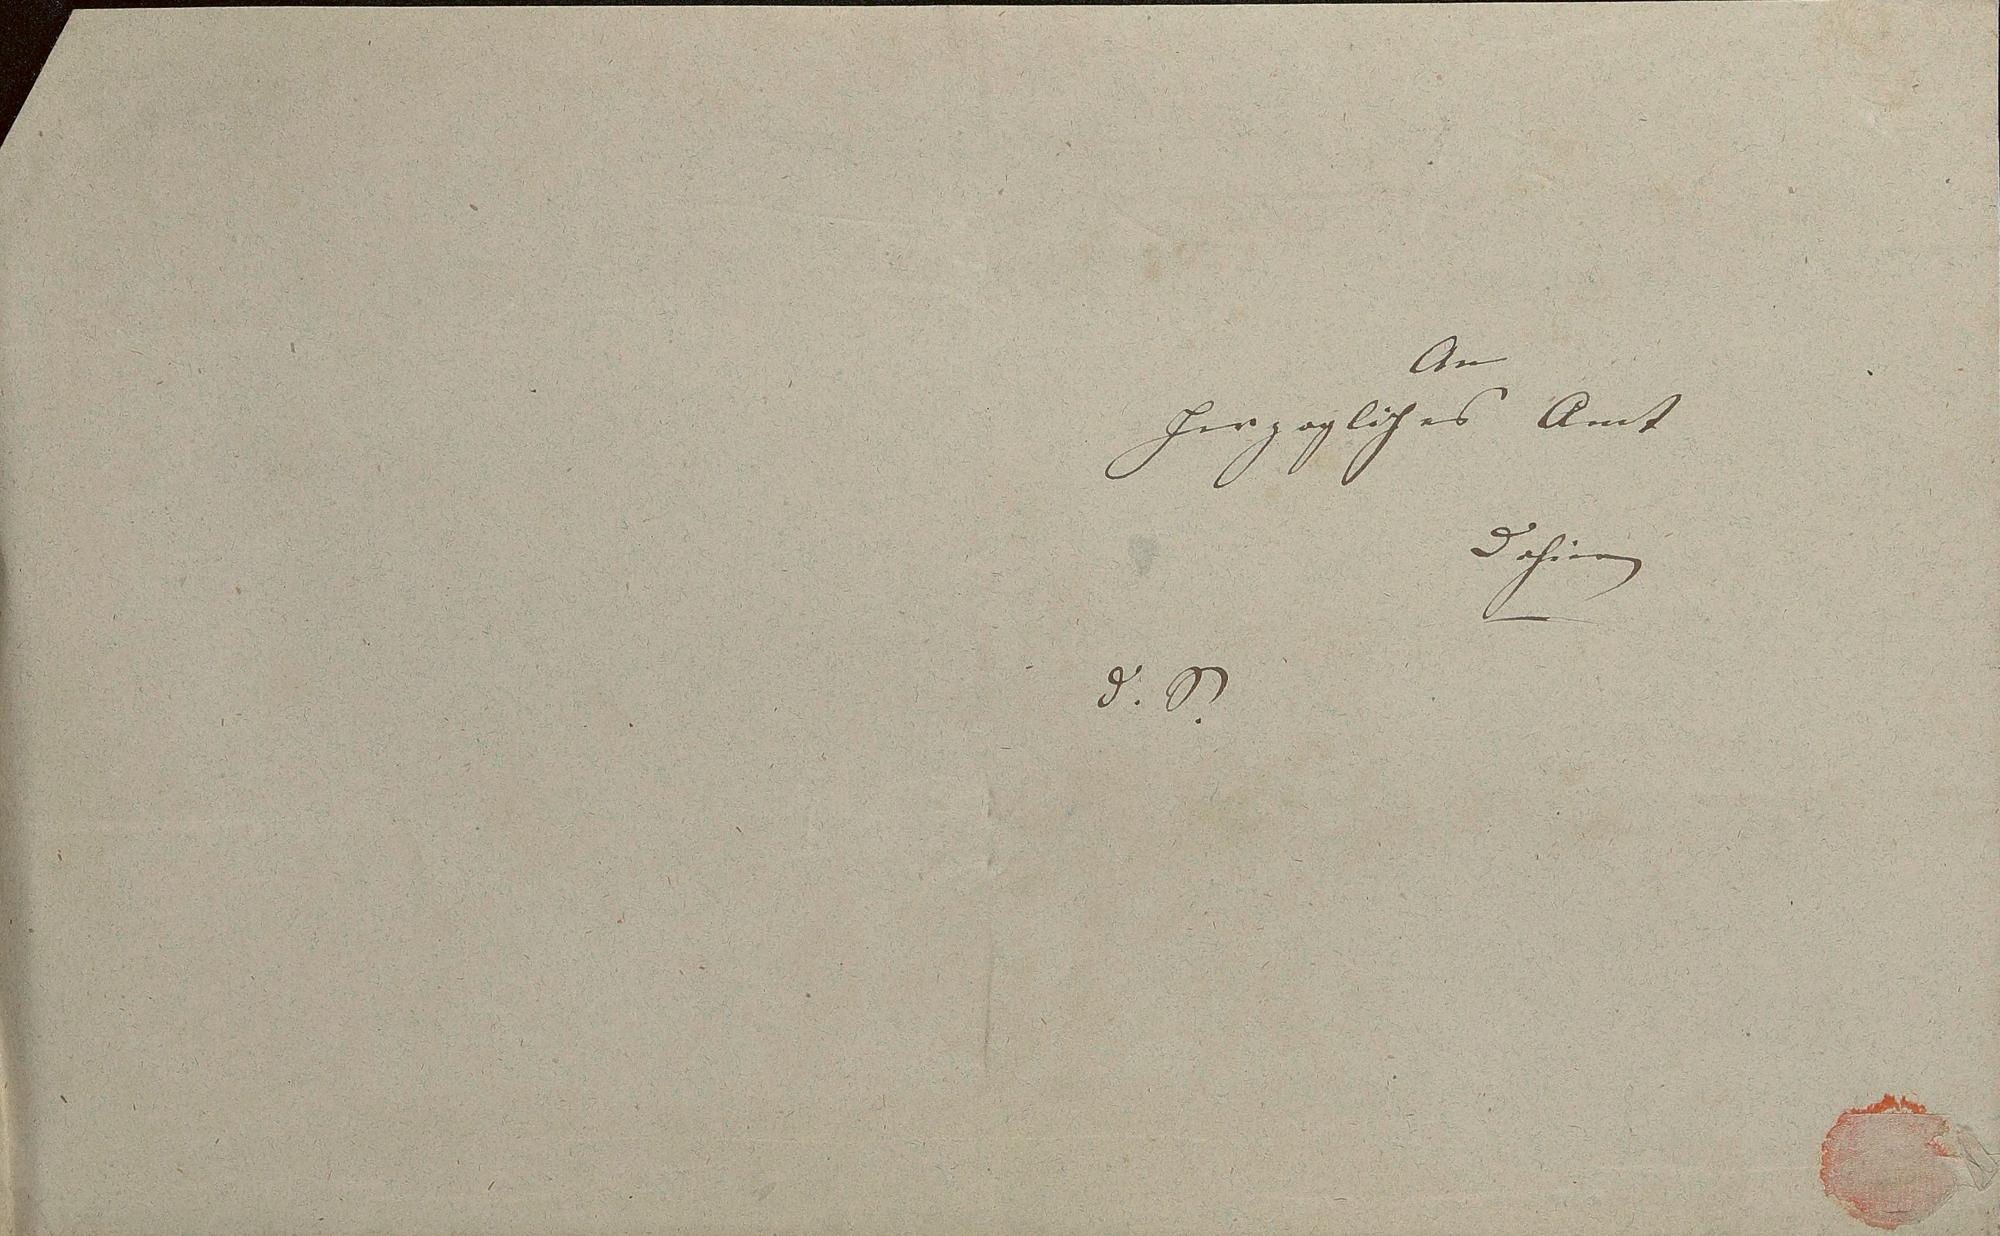 An
Herzogliches Amt
Dahier
d. S.